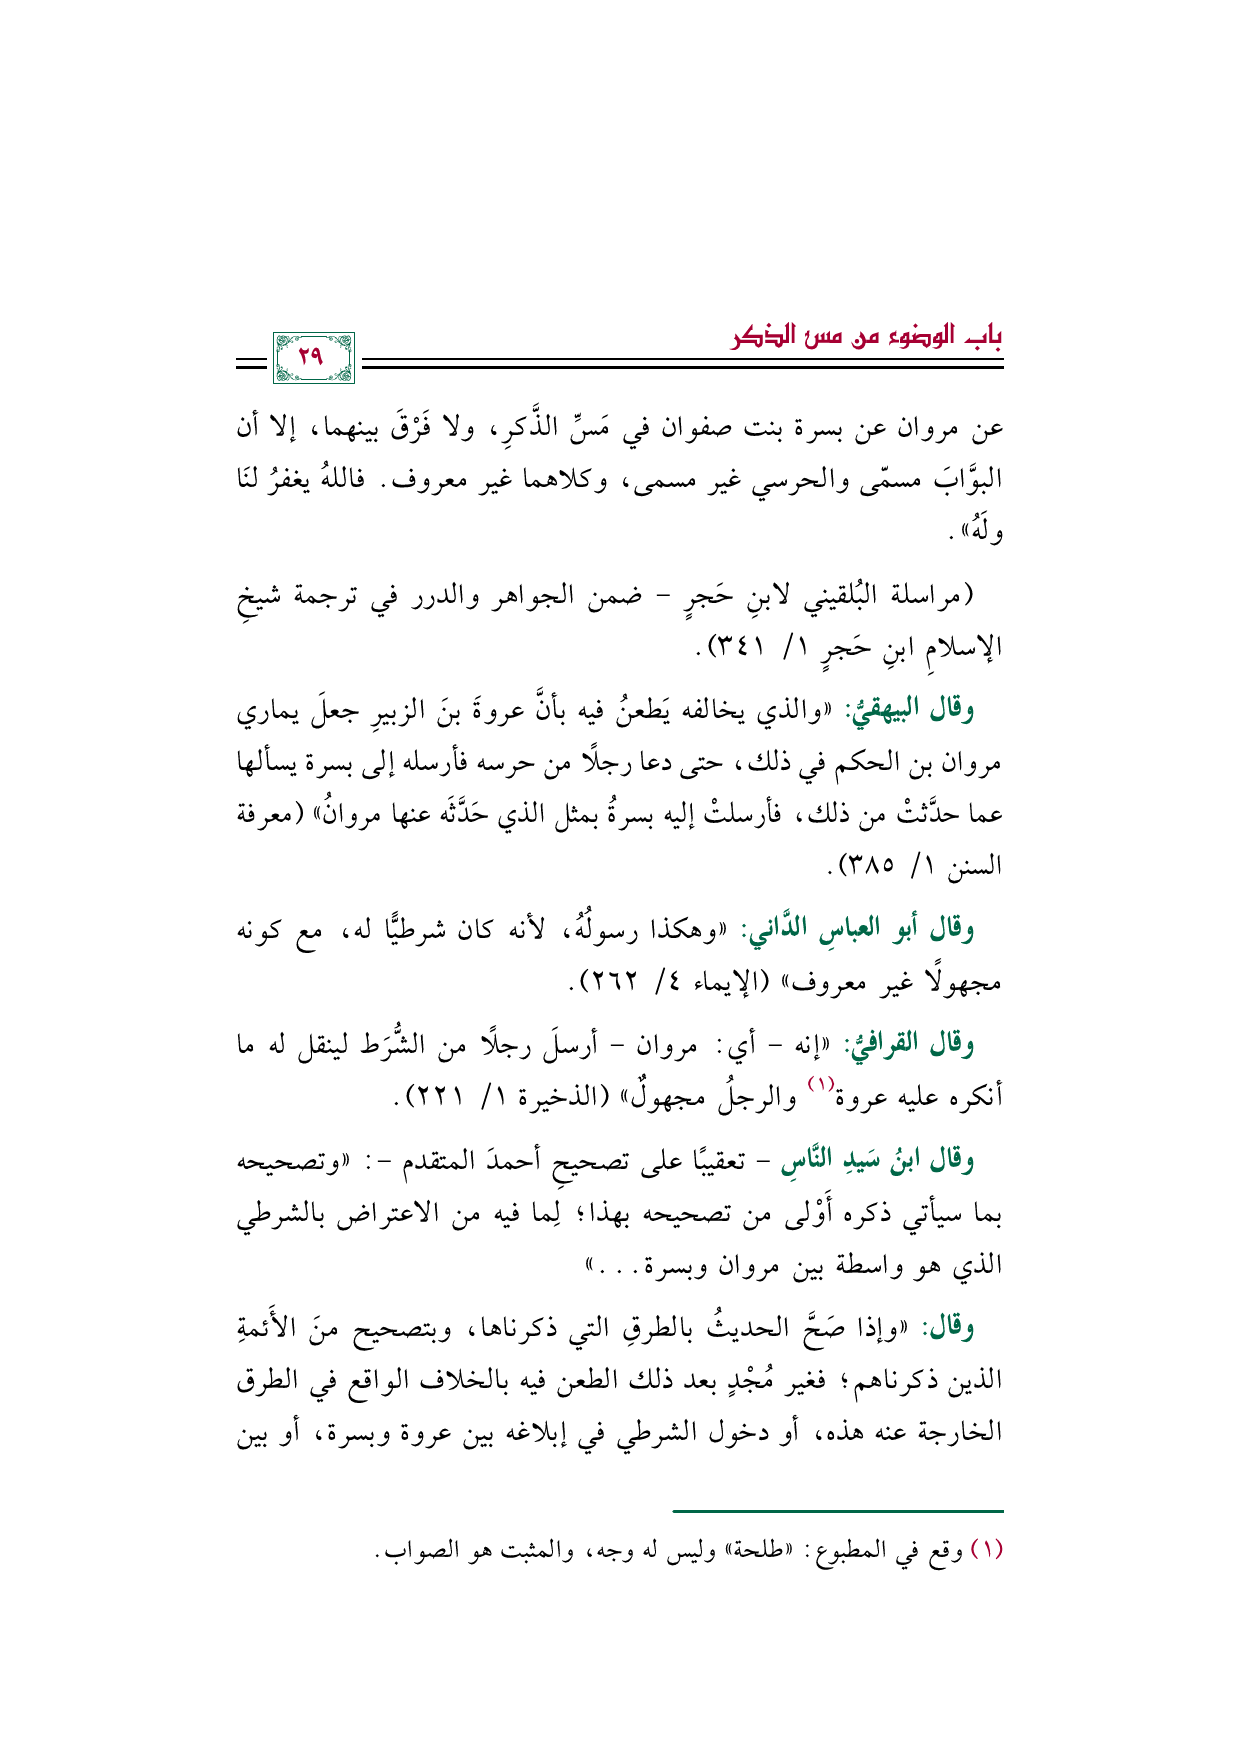 باب الوضوء من مس الذكر
٢٩
عن مروان عن بسرة بنت صفوان في مَسِّ الذَّكرِ، ولا فَرْقَ بينهما، إلا أن
البوَّابَ مسمّى والحرسي غير مسمى، وكلاهما غير معروف. فاللهُ يغفرُ لنَا
ولَهُ».
(مراسلة البُلقيني لابنِ حَجرٍ - ضمن الجواهر والدرر في ترجمة شيخِ
الإسلامِ ابنِ حَجرٍ ١/ ٣٤١).
وقال البيهقيُّ: «والذي يخالفه يَطعنُ فيه بأنَّ عروةَ بنَ الزبيرِ جعلَ يماري
مروان بن الحكم في ذلك، حتى دعا رجلًا من حرسه فأرسله إلى بسرة يسألها
عما حدَّثتْ من ذلك، فأرسلتْ إليه بسرةُ بمثل الذي حَدَّثَه عنها مروانُ» (معرفة
السنن ١/ ٣٨٥).
وقال أبو العباسِ الدَّاني: «وهكذا رسولُهُ، لأنه كان شرطيًّا له، مع كونه
مجهولًا غير معروف» (الإيماء ٤/ ٢٦٢).
وقال القرافيُّ: «إنه - أي: مروان - أرسلَ رجلًا من الشُّرَط لينقل له ما
أنكره عليه عروة(١) والرجلُ مجهولٌ» (الذخيرة ١/ ٢٢١).
وقال ابنُ سَيدِ النَّاسِ - تعقيبًا على تصحيحِ أحمدَ المتقدم -: «وتصحيحه
بما سيأتي ذكره أَوْلى من تصحيحه بهذا؛ لِما فيه من الاعتراض بالشرطي
الذي هو واسطة بين مروان وبسرة...»
وقال: «وإذا صَحَّ الحديثُ بالطرقِ التي ذكرناها، وبتصحيح منَ الأَئمةِ
الذين ذكرناهم؛ فغير مُجْدٍ بعد ذلك الطعن فيه بالخلاف الواقع في الطرق
الخارجة عنه هذه، أو دخول الشرطي في إبلاغه بين عروة وبسرة، أو بين
(١) وقع في المطبوع: «طلحة» وليس له وجه، والمثبت هو الصواب.